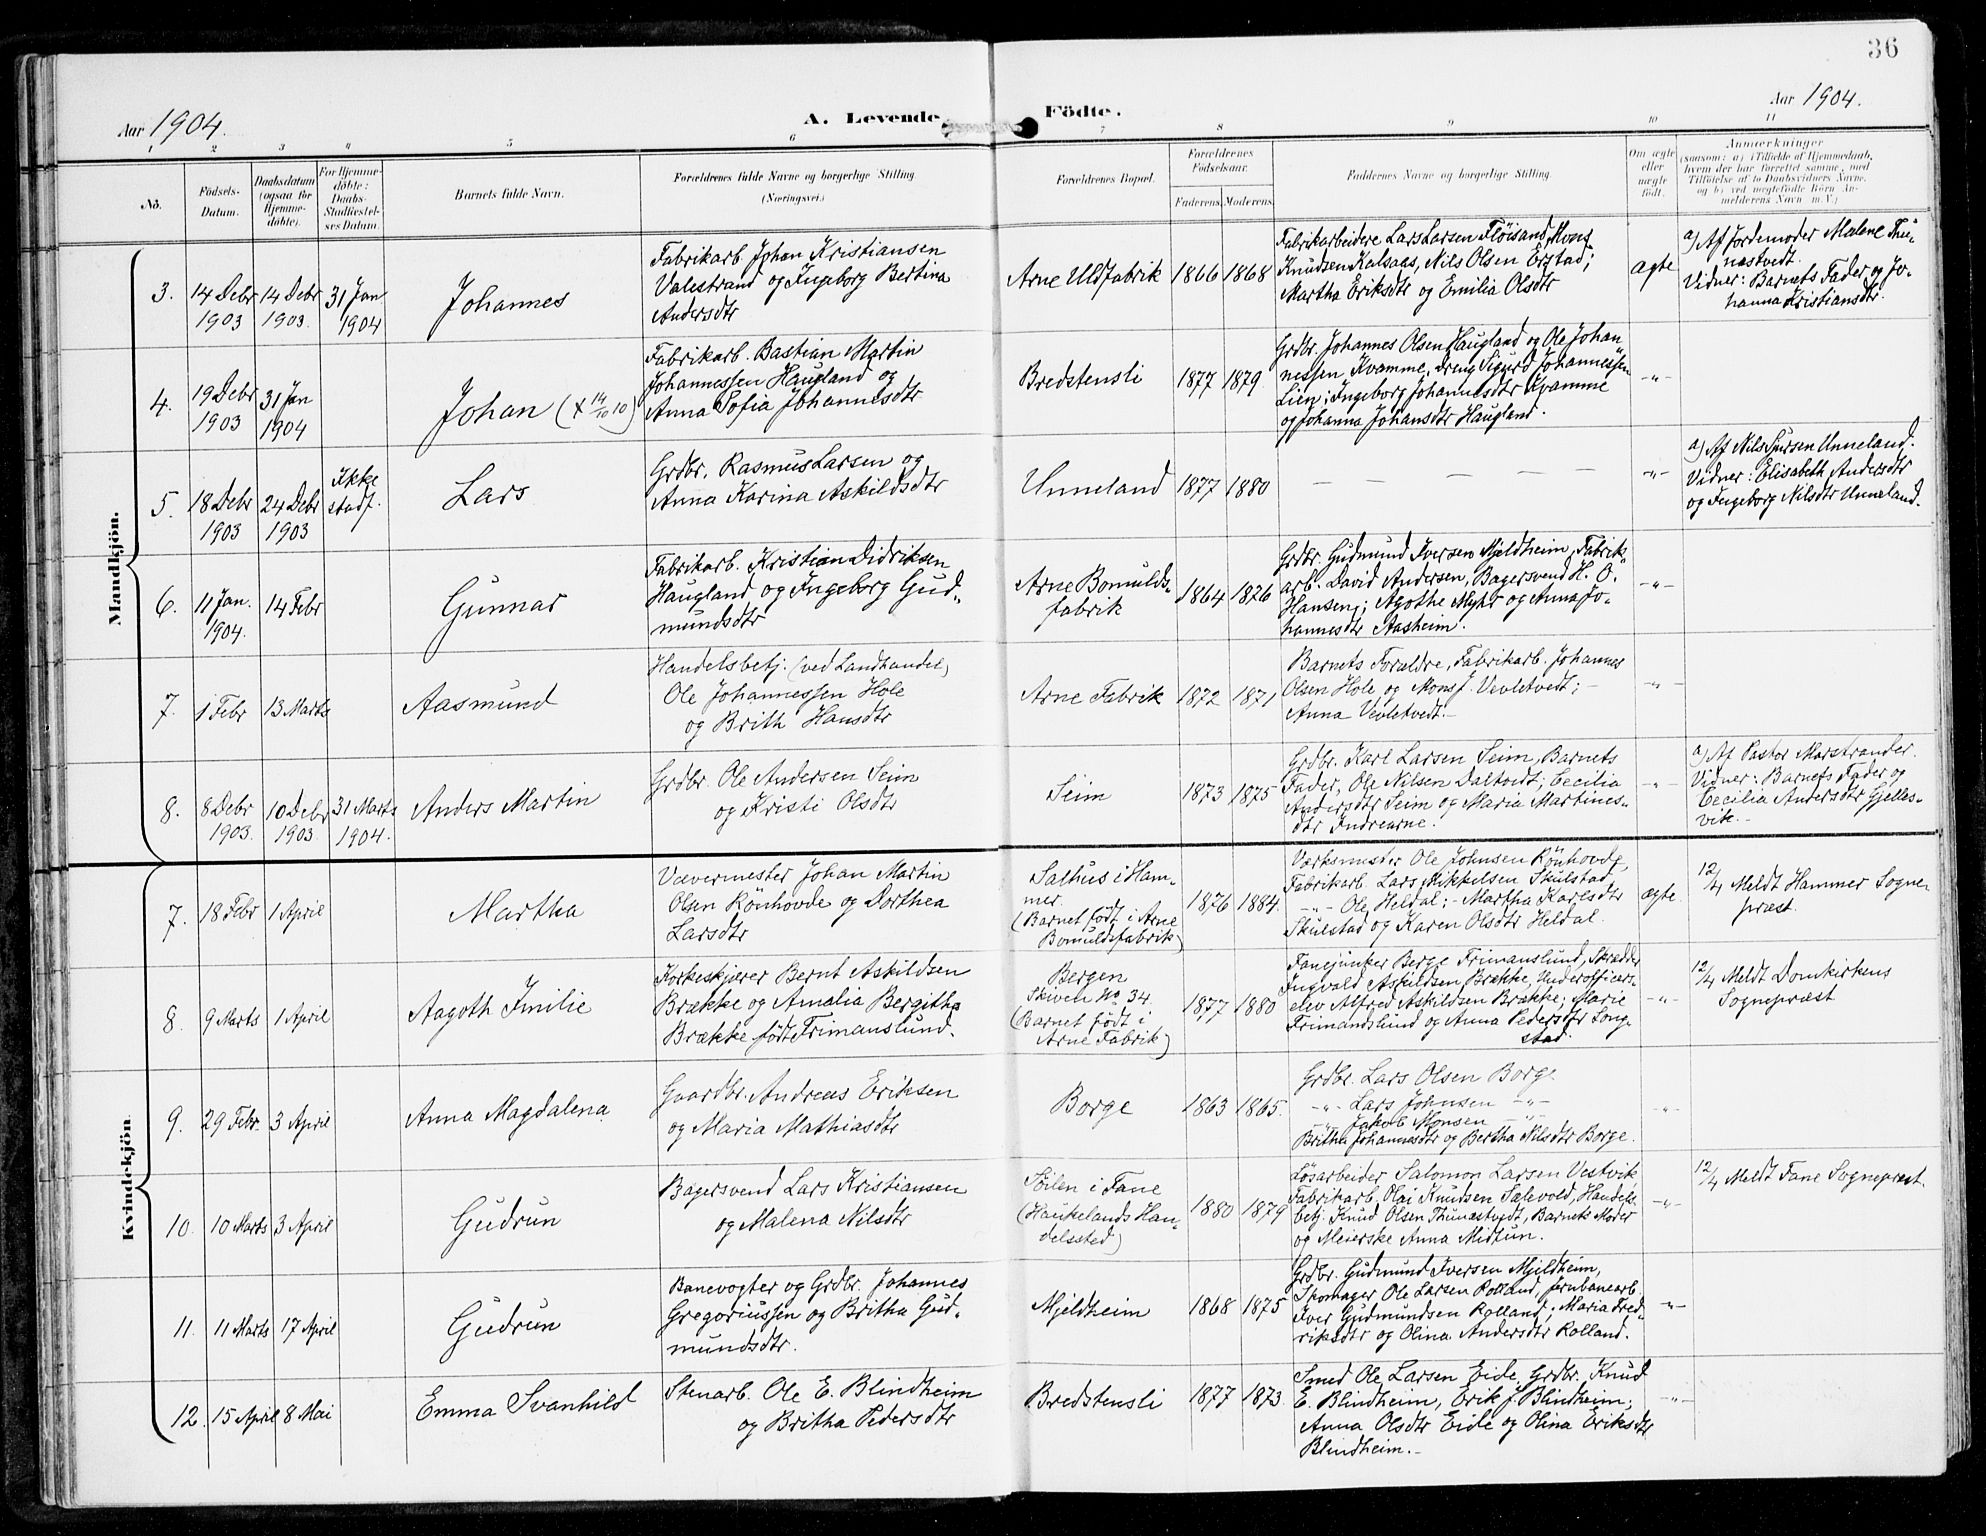 36
Aar 1904.
A. Levende
Födte.
Aar 1904.
1 2 3 4 5 6 7 8 9 10 11
No.
Födsels-
Datum.
Daabsdatum
(ogsaa for
Hjemme-
døbte).
For Hjemme-
døbte:
Daabs-
Stadfæstel-
ses Datum.
Barnets fulde Navn.
Forældrenes fulde Navne og borgerlige Stilling
(Næringsvei.)
Forældrenes Bopæl.
Forældrenes
Födselsaar.
Faderens. Moderens.
Faddernes Navne og borgerlige Stilling.
Om ægte
eller
uægte
födt.
Anmærkninger
(saasom: a) i Tilfælde af Hjemmedaab,
hvem der har forrettet samme, med
Tilföielse af to Daabsvidners Navne,
og b) ved uægtefødte Börn An-
melderens Navn m.V.)
Mandkjön.
3.
14 Debr
1903
14 Debr
1903.
31 Jan
1904
Johannes
Fabrikarb. Johan Kristiansen
Valestrand og Ingeborg Bertina
Andersdtr
Arne Uldfabrik
1866
1868
Fabrikarbeidere Lars Larsen Flöisand, Mons
Knudsen Kalsaas, Nils Olsen Erstad;
Martha Eriksdtr og Emilia Olsdtr
ægte
a) Af Jordemoder Malene Thu-
næstvedt.
Vidner: Barnets Fader og Jo-
hanna Kristiansdtr.
4.
19 Debr
1903
31 Jan
1904
Johan (x 14/10 10)
Fabrikarb. Bastian Martin
Johannessen Haugland og
Anna Sofia Johannesdtr
Bredstensli
1877
1879.
Grdbr. Johannes Olsen Haugland og Ole Johan-
nessen Kvamme, Dreng Sigurd Johannessen
Lien; Ingeborg Johannesdtr Kvamme
og Johanna Johansdtr Haugland.
-"-
5.
18 Debr
1903
24 Debr
1903
Ikke
stadf.
Lars
Grdbr. Rasmus Larsen og
Anna Karina Askildsdtr
Unneland
1877
1880
— — — — —
-"-
a) Af Nils Sjursen Unneland.
Vidner: Elisabeth Andersdtr
og Ingeborg Nilsdtr Unneland.
6.
11 Jan.
1904.
14 Febr
Gunnar
Fabrikarb. Kristian Didriksen
Haugland og Ingeborg Gud-
mundsdtr
Arne Bomulds-
fabrik
1864
1876
Grdbr. Gudmund Iversen Mjeldheim, Fabrik-
arb. David Andersen, Bagersvend H. O.
Hansen; Agothe Myhr og Anna Jo-
hannesdtr Aasheim.
-"-
7.
1 Febr
13 Marts
Aasmund
Handelsbetj. (ved Landhandel)
Ole Johannessen Hole
og Brith Hansdtr
Arne Fabrik
1872
1871
Barnets Forældre, Fabrikarb. Johannes
Olsen Hole og Mons J. Vevletvedt; -
Anna Vevletvedt. -
-"-
8.
8 Debr
1903.
10 Debr
1903.
31 Marts
1904.
Anders Martin
Grdbr. Ole Andersen Seim
og Kristi Olsdtr
Seim
1873
1875
Grdbr. Karl Larsen Seim, Barnets
Fader, Ole Nilsen Daltvedt; Cecilia
Andersdtr Seim og Maria Martines-
dtr Indrearne.
-"-
a) Af Pastor Marstrander.
Vidner: Barnets Fader og
Cecilia Andersdtr Gjelles-
vik. -
Kvindekjön
7.
18 Febr
1 April
Martha
Vævermester Johan Martin
Olsen Rönhovde og Dorthea
Larsdtr
Salhus i Ham-
mer.
(Barnet födt i Arne
Bomuldsfabrik)
1876
1884.
Værksmester Ole Johnsen Rönhovde,
Fabrikarb. Lars Mikkelsen Skulstad,
-"- Ole Heldal; - Martha Karlsdtr
Skulstad og Karen Olsdtr Heldal.
ægte.
12/4 Meldt Hammer Sogne-
præst.
8.
9 Marts
1 April
Aagoth Emilie
Korkeskjærer Bernt Askildsen
Brække og Amalia Bergitha
Brække födt Frimanslund.
Bergen
Skiven No 34.
(Barnet födt i
Arne Fabrik)
1877
1880
Fanejunker Berge Frimanslund, Skrædder
Ingvald Askildsen Brække, Underofficers-
elev Alfred Askildsen Brække; Marie
Frimandslund og Anna Pedersdtr Long-
stad.
-"-
12/4 Meldt Domkirkens
Sognepræst
9.
29 Febr.
3 April
Anna Magdalena
Gaardbr. Andreas Eriksen
og Maria Mathiasdtr
Borge
1863
1865.
Grdbr. Lars Olsen Borge
-"- Lars Johnsen -"-
-"- Jakob Monsen -"-
Britha Johannesdtr og Bertha Nilsdtr Borge.
-"-
10.
10 Marts
3 April
Gudrun
Bagersvend Lars Kristiansen
og Malena Nilsdtr
Söilen i Fane
(Haukelands Han-
delssted)
1880
1879
Lösarbeider Salomon Larsen Vestvik,
Fabrikarb. Olai Knudsen Salevold, Handels-
betj. Knud Olsen Thunæstvedt, Barnets Moder
og Meierske Anna Midtun.
-"-
12/4 Meldt Fane Sognepræst.
11.
11 Marts
17 April
Gudrun
Banevogter og Grdbr. Johannes
Gregoriussen og Britha Gud-
mundsdtr.
Mjeldheim
1868
1875
Grdbr. Gudmund Iversen Mjeldheim,
Skomager Ole Larsen Rolland, Jernbanearb.
Iver Gudmundsen Rolland; Maria Fred-
riksdtr og Olina Andersdtr Rolland.
-"-
12.
15 April
8 Mai
Emma Svanhild
Stenarb. Ole E. Blindheim
og Britha Pedersdtr
Bredstensli
1877
1873.
Smed Ole Larsen Eide, Grdbr. Knud
E. Blindheim, Erik J. Blindheim;
Anna Olsdtr Eide og Olina Eriksdtr
Blindheim. -
-"-